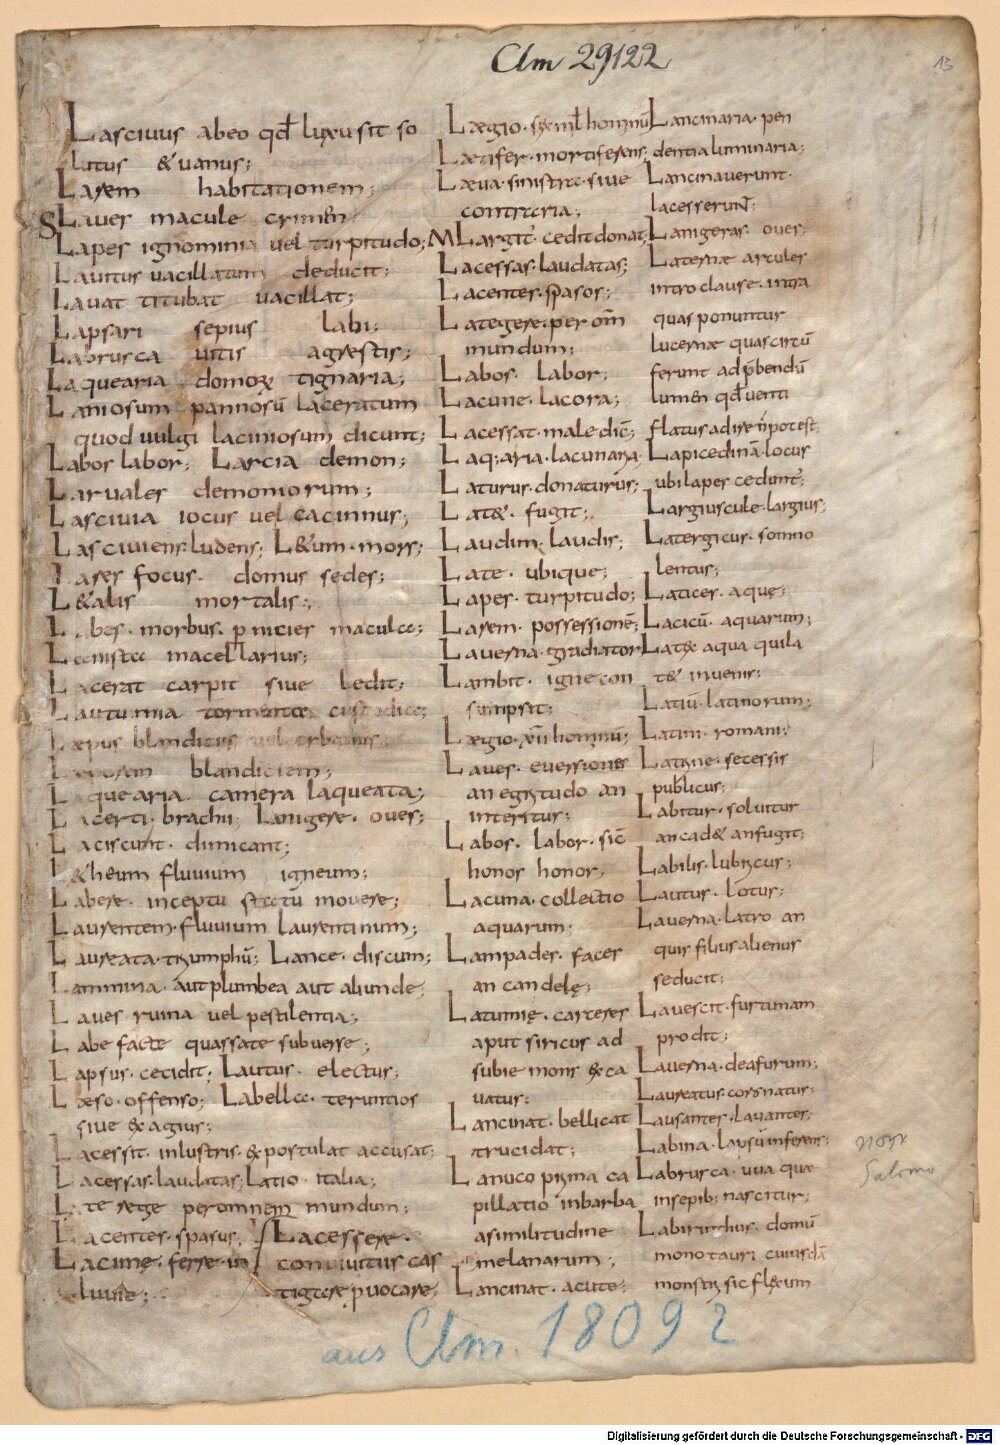 Clm 29122
13
Lascivus abeo qđ luxu sit so
lutus & uanus;
Larem habitationem;
S Laues macule crimen;
Lapes ignominia uel turpitudo;
Lauitus uacillatum deducit;
Lauat titubat uacillat;
Lapsari sepius labi;
Labrusca uitis agrestis;
Laquearia domorꝝ tignaria;
Laniosum pannosū laceratum
quod uulgi laciniosum dicunt;
Labos labor; Larcia demon;
Laruales demoniorum;
Lasciuia iocus uel cacinnus;
Lasciuiens ludens; L&um · mors;
Lares focus · domus sedes;
L&alis mortalis;
L bes · morbus · pnicies macula;
Lanista macellarius;
Lacerat carpit siue ledit;
Lautumia custodia;
Læpus blandicius
blandiciem;
Laquearia camera laqueata;
Lacerti · brachii; Lanigere · oues;
Laciscunt · dimicant;
L&heum fluuium igneum;
Labere · inceptu statū mouere;
Laurentem · fluuium laurentinum;
Laureata · triumphū; Lance · discum;
Lammina · aut plumbea aut aliunde;
Laues ruina uel pestilentia;
Labe facte quassate subuerse;
Lapsus · cecidit; Lautus · electus;
Læso · offenso; Labella · teruntios
siue &agius;
Lacessit · inlustris · & postulat accusat;
Lacessas · laudatas; Latio · italia;
Late rege peromnem mundum;
Lacentes · spasus; Lacessere ·
Lacinę · ferre in conuiuitus cas
luuie; tigare puocare
Lægio · sex ml hominū
Lætifer · mortiferens;
Læua · sinistra · siue
contraria;
M Largit · cedit donat
Lacessas · laudatas;
Lacentes · spasos;
Lategere · per om̄
mundum;
Labos · labor;
Lacune · lacora;
Lacessat · maledic̄;
Laq;aria · lacunaria
Laturus · donaturus;
Lat& · fugit;
Laudim · laudis;
Late · ubique;
Lapes · turpitudo;
Larem · possessionē;
Lauerna · gradiator
Lambit · igne con
sumpsit;
Lægio · xii hominū;
Laues · euersiones
an egritudo an
interitus;
Labos · labor · sic̄
honos honor;
Lacuna · collectio
aquarum;
Lampades · faces
an candelę;
Latumię · carceres
aput siricus ad
subie mons & ca
uatus;
Lancinat · bellicat
trucidat;
Lanuco prima ca
pillatio inbarba
asimilitudine
melanarum;
Lancinat · acute;
Lancinaria · pen
dentia luminaria;
Lancinauerunt ·
lacesserunt;
Lanigeras · oues;
Laternæ arcules
intro clause · intra
quas ponuntur
lucernæ quas circū
ferunt ad p̄bendū
lumen qđ uenti
flatus adire n̄ potest;
Lapicedinā · locus
ubi lapes cedunt;
Largiuscule · largius;
Latergicus · somno
lentus;
Latices · aque;
Lacicū · aquarum;
Latex aqua quila
t& inuenis;
Latiū · latinorum;
Latini · romani;
Latrine · secessis
publicus;
Labitur · soluitur
an cad& an fugit;
Labilis · lubricus;
Lautus · lotus;
Lauerna · latro an
quis filius alienus
seducit;
Lauescit · furtunam
prodit;
Lauerna · deafurum;
Laureatus · coronatus;
Lausantes · lauantes;
Labina · lapsū inferens;
Labrusca · uua quæ
insepib; nascitur;
Labirinthus · domū
monotauri cuiusdā
monstri sic flexum
Salomo
aus Clm. 18092
Digitalisierung gefördert durch die Deutsche Forschungsgemeinschaft - DFG